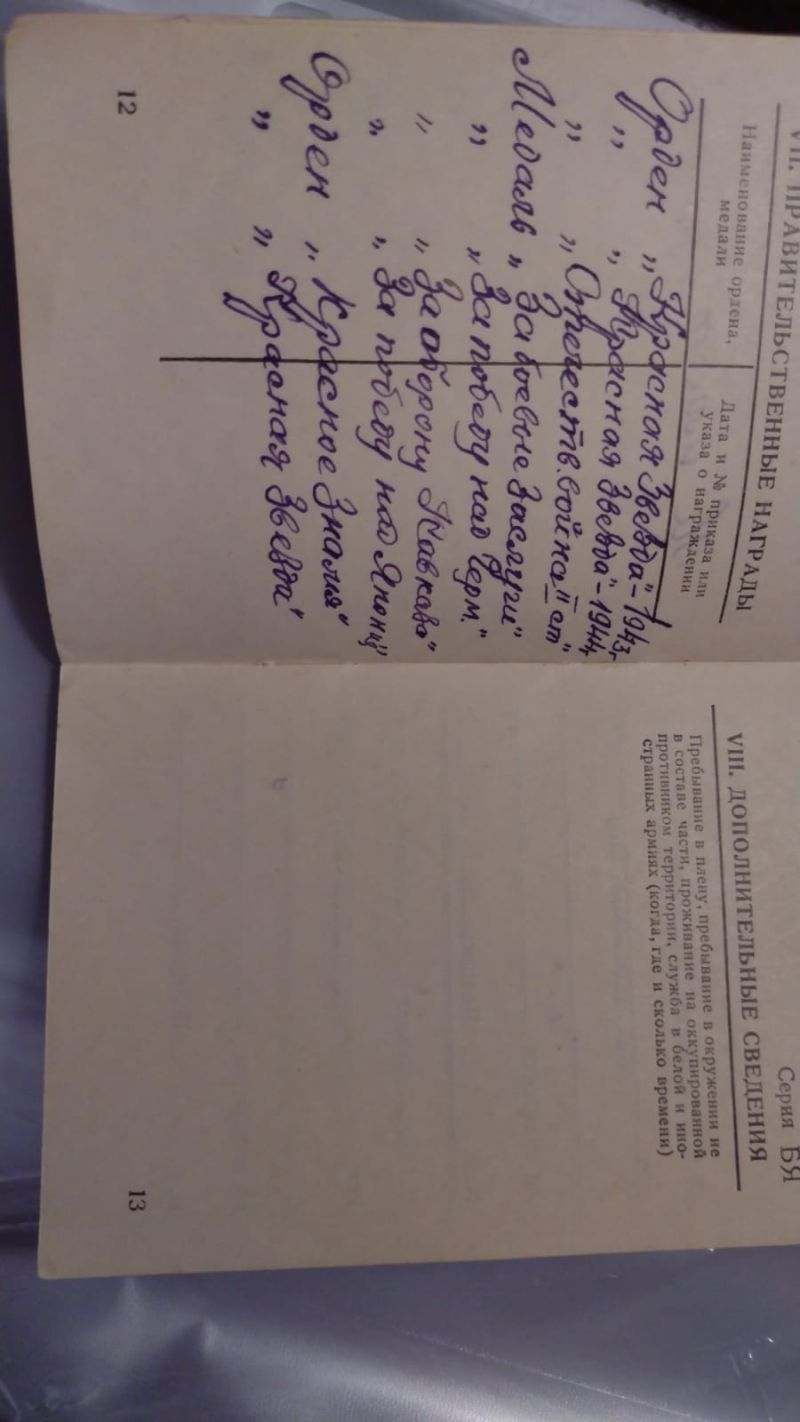 VII. ПРАВИТЕЛЬСТВЕННЫЕ НАГРАДЫ
Наименование ордена,
медали
Дата и № приказа или
указа о награждении
Орден „Красная Звезда"-1943г.
„ „Красная Звезда"-1944г.
„ „Отечеств. война" II ст
Медаль „За боевые заслуги"
„ „За победу над Герм."
„ „За оборону Кавказа"
„ „За победу над Японц"
Орден „Красное Знамя"
„ „Красная Звезда"
12
Серия БЯ
VIII. ДОПОЛНИТЕЛЬНЫЕ СВЕДЕНИЯ
Пребывание в плену, пребывание в окружении не
в составе части, проживание на оккупированной
противником территории, служба в белой и ино-
странных армиях (когда, где и сколько времени)
13